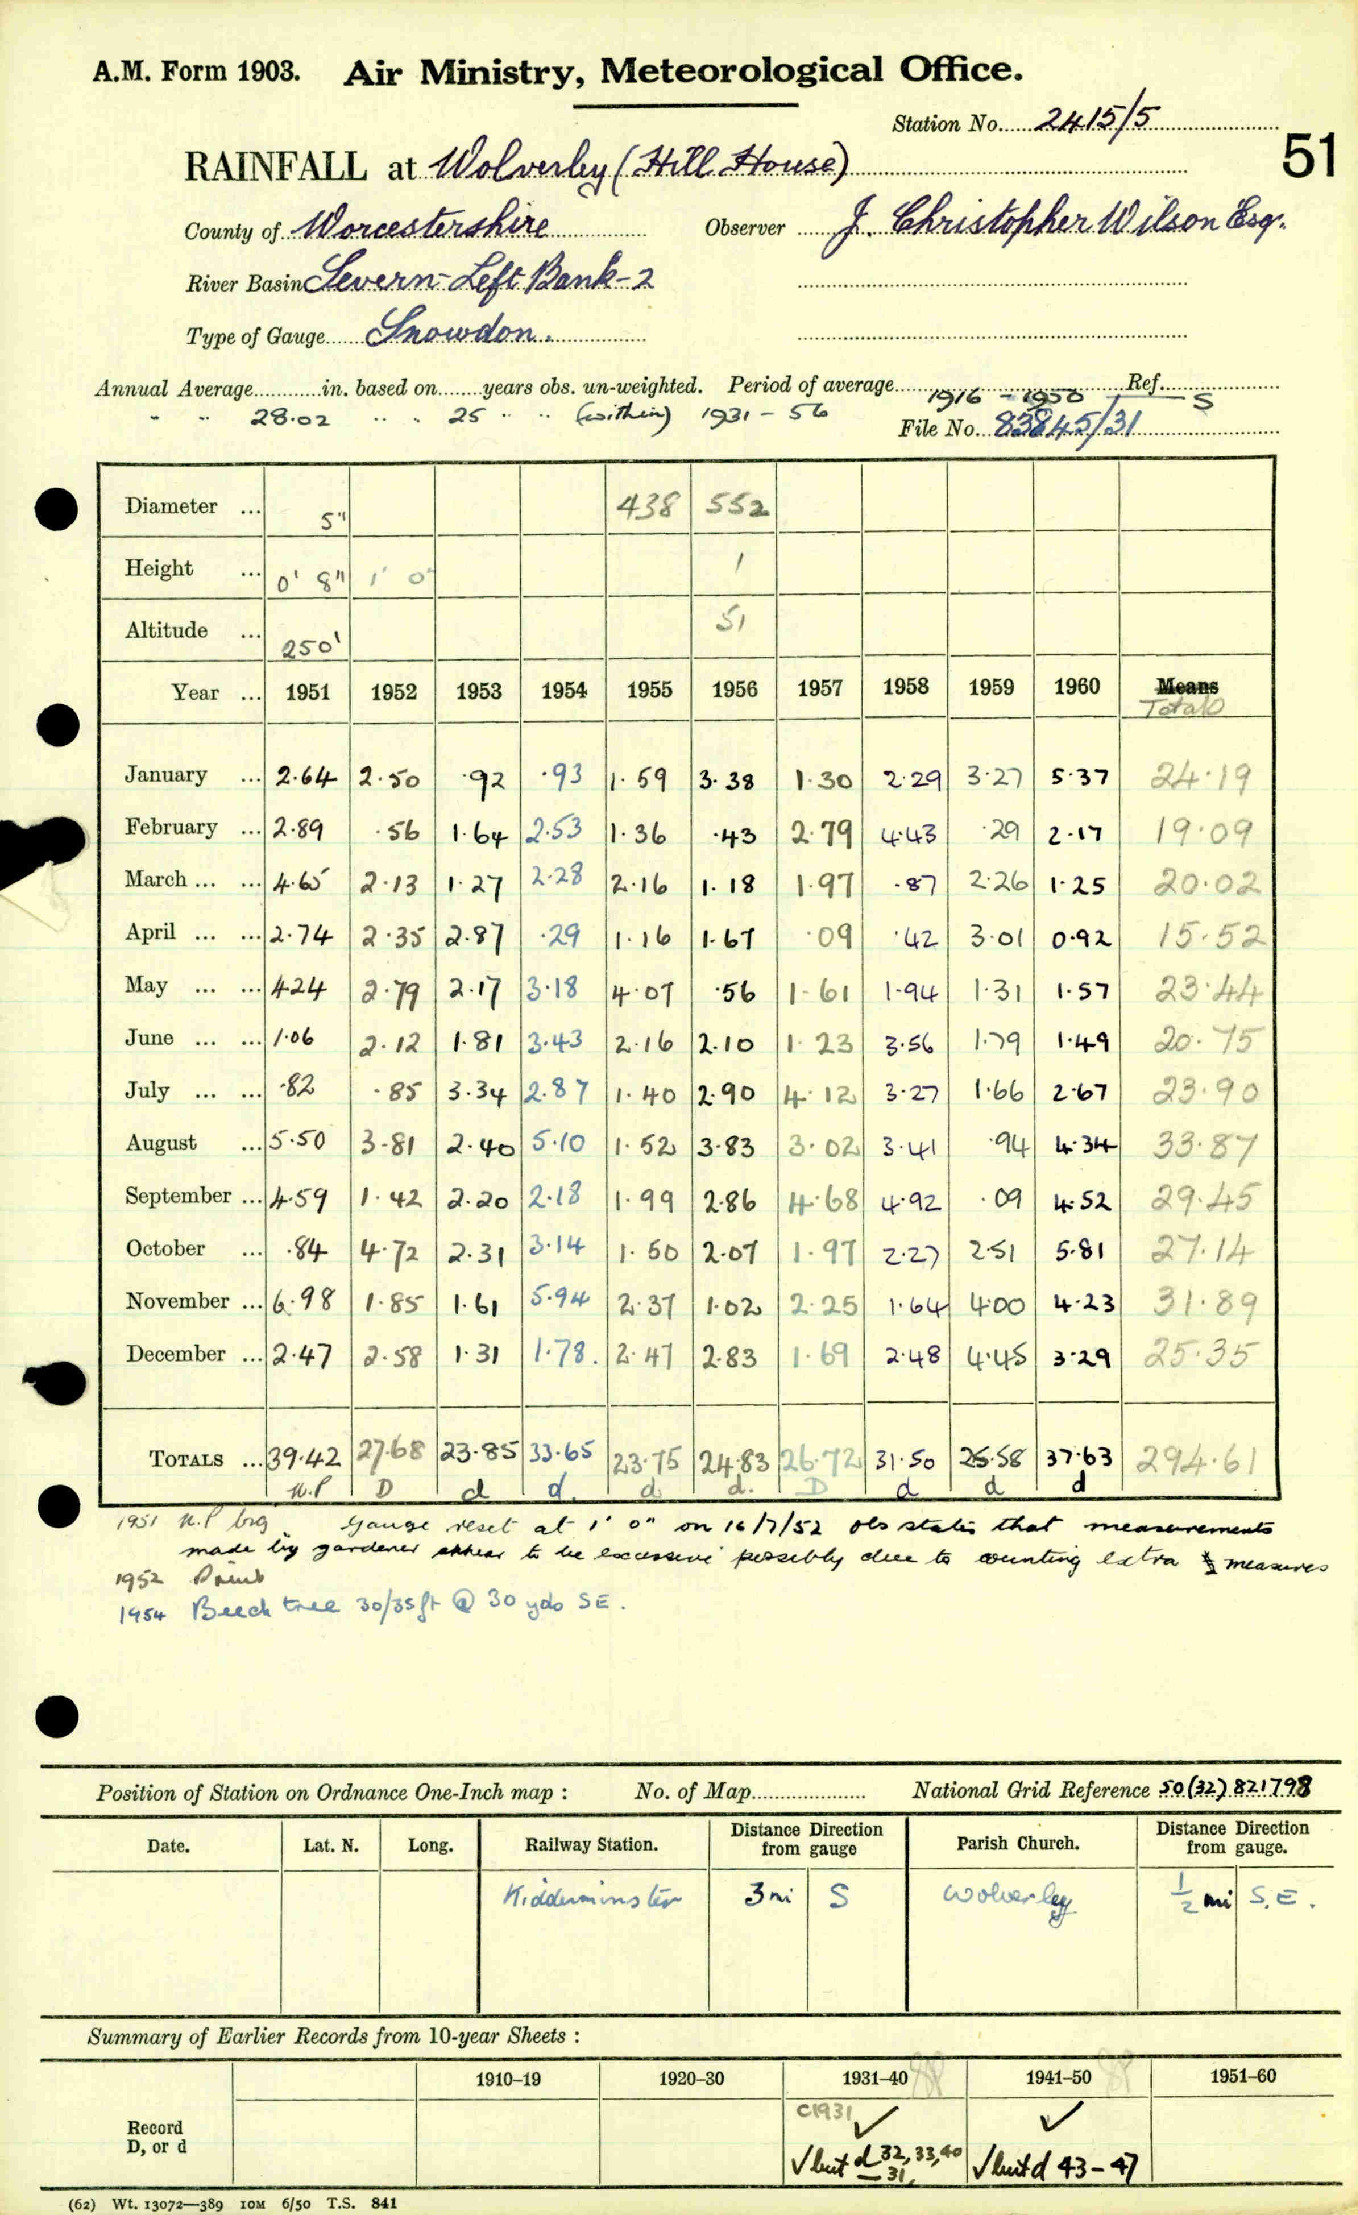 A.M. Form 1903. Air Ministry, Meteorological Office.
Station No. 2415/5
51
RAINFALL at Wolverley (Hill House)
County of Worcestershire Observer J. Christopher Wilson Esq.
River Basin Severn-Left Bank-2
Type of Gauge Snowdon.
Annual Average in. based on years obs. un-weighted. Period of average 1916 - 1950 Ref. S
" " 28.02 " " 25 " " (within) 1931 - 56
File No. 83845/31
Diameter ... 5" 438 552
Height ... 0' 8" 1' 0" 1
Altitude ... 250' 51
Year ... 1951 1952 1953 1954 1955 1956 1957 1958 1959 1960 Means
Totals
January ... 2.64 2.50 .92 .93 1.59 3.38 1.30 2.29 3.27 5.37 24.19
February ... 2.89 .56 1.64 2.53 1.36 .43 2.79 4.43 .29 2.17 19.09
March ... ... 4.65 2.13 1.27 2.28 2.16 1.18 1.97 .87 2.26 1.25 20.02
April ... ... 2.74 2.35 2.87 .29 1.16 1.67 .09 .42 3.01 0.92 15.52
May ... ... 4.24 2.79 2.17 3.18 4.07 .56 1.61 1.94 1.31 1.57 23.44
June ... ... 1.06 2.12 1.81 3.43 2.16 2.10 1.23 3.56 1.79 1.49 20.75
July ... ... .82 .85 3.34 2.87 1.40 2.90 4.12 3.27 1.66 2.67 23.90
August ... 5.50 3.81 2.40 5.10 1.52 3.83 3.02 3.41 .94 4.34 33.87
September ... 4.59 1.42 2.20 2.18 1.99 2.86 4.68 4.92 .09 4.52 29.45
October ... .84 4.72 2.31 3.14 1.50 2.07 1.97 2.27 2.51 5.81 27.14
November ... 6.98 1.85 1.61 5.94 2.37 1.02 2.25 1.64 4.00 4.23 31.89
December ... 2.47 2.58 1.31 1.78. 2.47 2.83 1.69 2.48 4.45 3.29 25.35
TOTALS ... 39.42 27.68 23.85 33.65 23.75 24.83 26.72 31.50 25.58 37.63 294.61
n.P D d d. d d. D d d d
1951 n.P brg. Gauge reset at 1' 0" on 16/7/52 obs states that measurements
made by gardener appear to be excessive possibly due to counting extra ½ measures
1952
1954 Beech tree 30/35ft @ 30 yds SE.
Position of Station on Ordnance One-Inch map : No. of Map National Grid Reference 50(32)821798
Date. Lat. N. Long. Railway Station. Distance Direction from gauge Parish Church. Distance Direction from gauge.
Kidderminster 3 mi S Wolverley ½ mi S.E.
Summary of Earlier Records from 10-year Sheets :
1910–19 1920–30 1931–40 1941–50 1951–60
Record
D, or d
C1931 ✓ ✓
✓ but d 32, 33, 40 ✓ but d 43 - 47
— 31,
(62) Wt. 13072—389 10M 6/50 T.S. 841